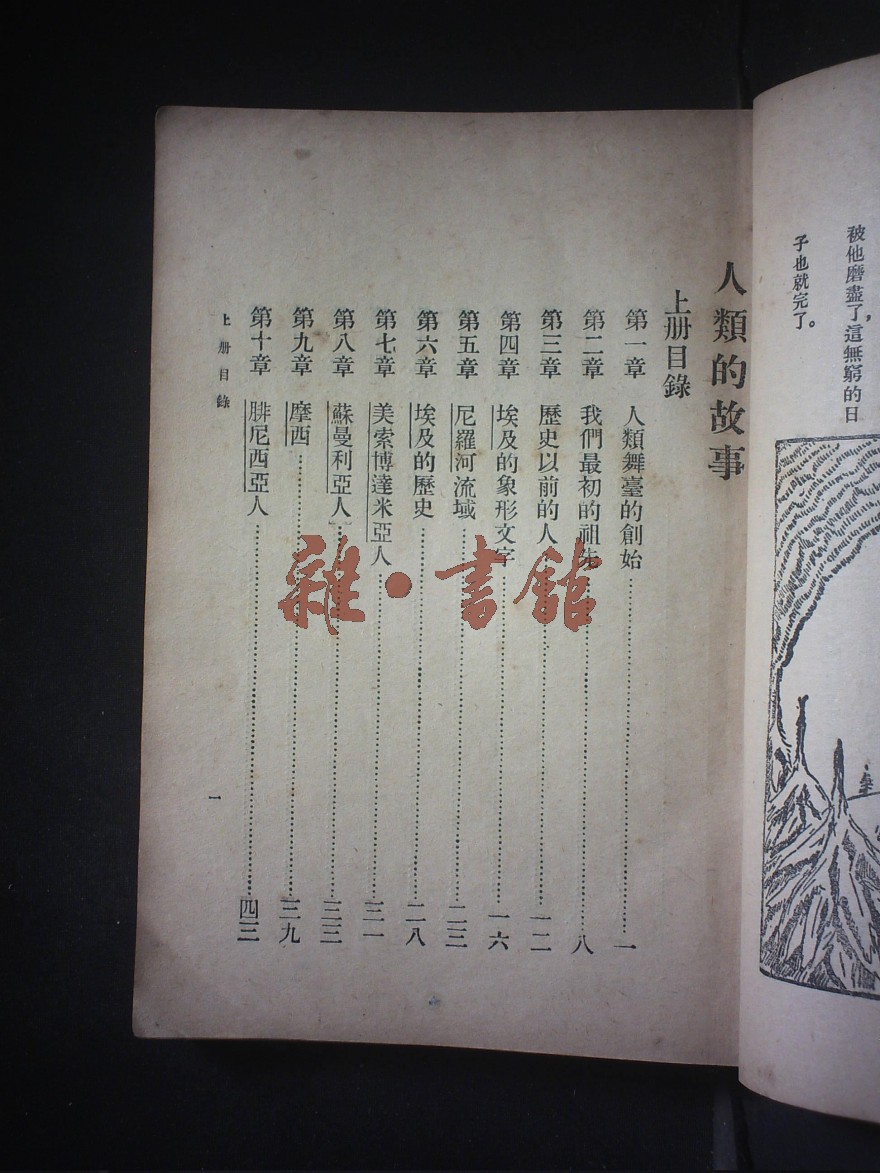 被他磨盡了,這無窮的日
子也就完了。
人類的故事
上册目錄
第一章 人類舞臺的創始……一
第二章 我們最初的祖先……八
第三章 歷史以前的人……一二
第四章 埃及的象形文字……一六
第五章 尼羅河流域……二三
第六章 埃及的歷史……二八
第七章 美索博達米亞人……三一
第八章 蘇曼利亞人……三三
第九章 摩西……三九
第十章 腓尼西亞人……四三
上册目錄
一
雜·書館